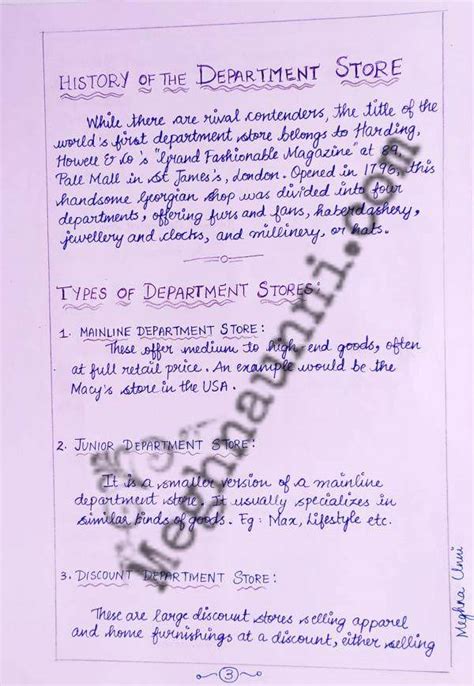 HISTORY OF THE DEPARTMENT STORE
While there are rival contenders, the title of the
world's first department store belongs to Harding,
Howell & Co's "Grand Fashionable Magazine" at 89
Pall Mall in St James's, London. Opened in 1796, this
handsome Georgian shop was divided into four
departments, offering furs and fans, haberdashery,
jewellery and clocks, and millinery, or hats.
TYPES OF DEPARTMENT STORES:
1. MAINLINE DEPARTMENT STORE:
These offer medium to high-end goods, often
at full retail price. An example would be the
Macy's store in the USA.
2. JUNIOR DEPARTMENT STORE:
It is a smaller version of a mainline
department store. It usually specializes in
similar kinds of goods. Eg: Max, Lifestyle etc.
3. DISCOUNT DEPARTMENT STORE:
These are large discount stores selling apparel
and home furnishings at a discount, either selling
3
Meghna Unni
Meghnaunni.com